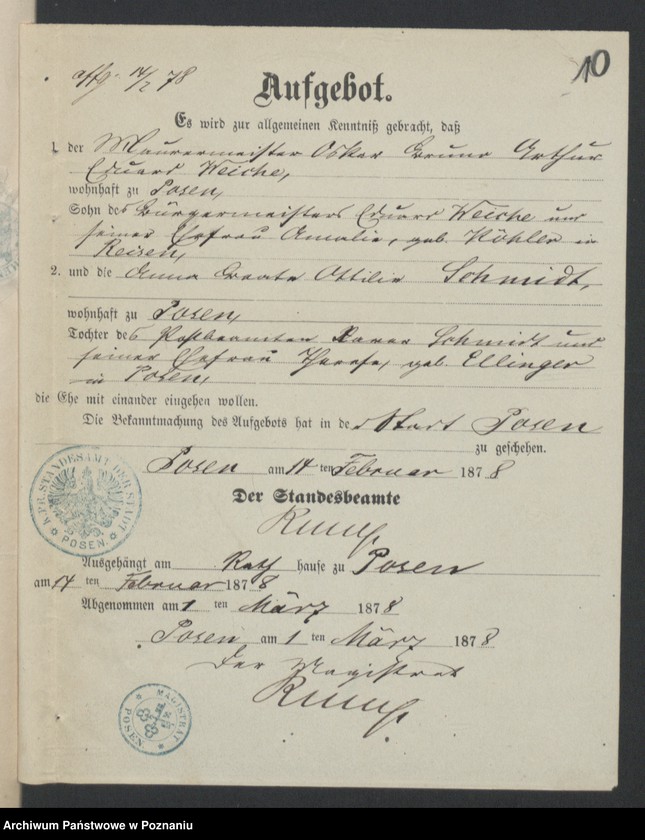 affg. 14/2 78
10
Aufgebot.
Es wird zur allgemeinen Kenntniß gebracht, daß
1. der Maurermeister Oskar Bruno Arthur
Eduard Weiche,
wohnhaft zu Posen,
Sohn des Bürgermeisters Eduard Weiche und
seiner Ehefrau Amalie, geb. Köhler in
Reisen,
2. und die Anna Beate Ottilie Schmidt,
wohnhaft zu Posen,
Tochter des Postbeamten Xaver Schmidt und
seiner Ehefrau Therese, geb. Ellinger
in Posen,
die Ehe mit einander eingehen wollen.
Die Bekanntmachung des Aufgebots hat in der Stadt Posen
zu geschehen.
Posen am 14 ten Februar 1878
Der Standesbeamte
K. PR. STANDESAMT DER STADT POSEN.
Ausgehängt am Rath hause zu Posen
am 14 ten Februar 1878
Abgenommen am 1 ten März 1878
Posen am 1 ten März 1878
Der Magistrat
MAGISTRAT POSEN
Archiwum Państwowe w Poznaniu